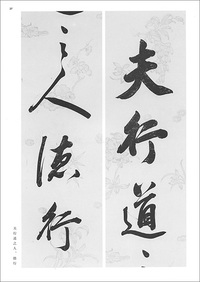 夫行道
之人德行